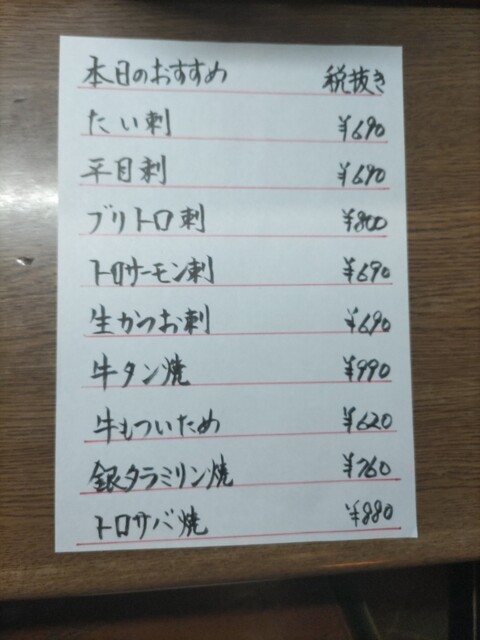 本日のおすすめ 税抜き
たい刺 ¥690
平目刺 ¥690
ブリトロ刺 ¥800
トロサーモン刺 ¥690
生かつお刺 ¥690
牛タン焼 ¥990
牛もついため ¥620
銀タラミリン焼 ¥760
トロサバ焼 ¥880